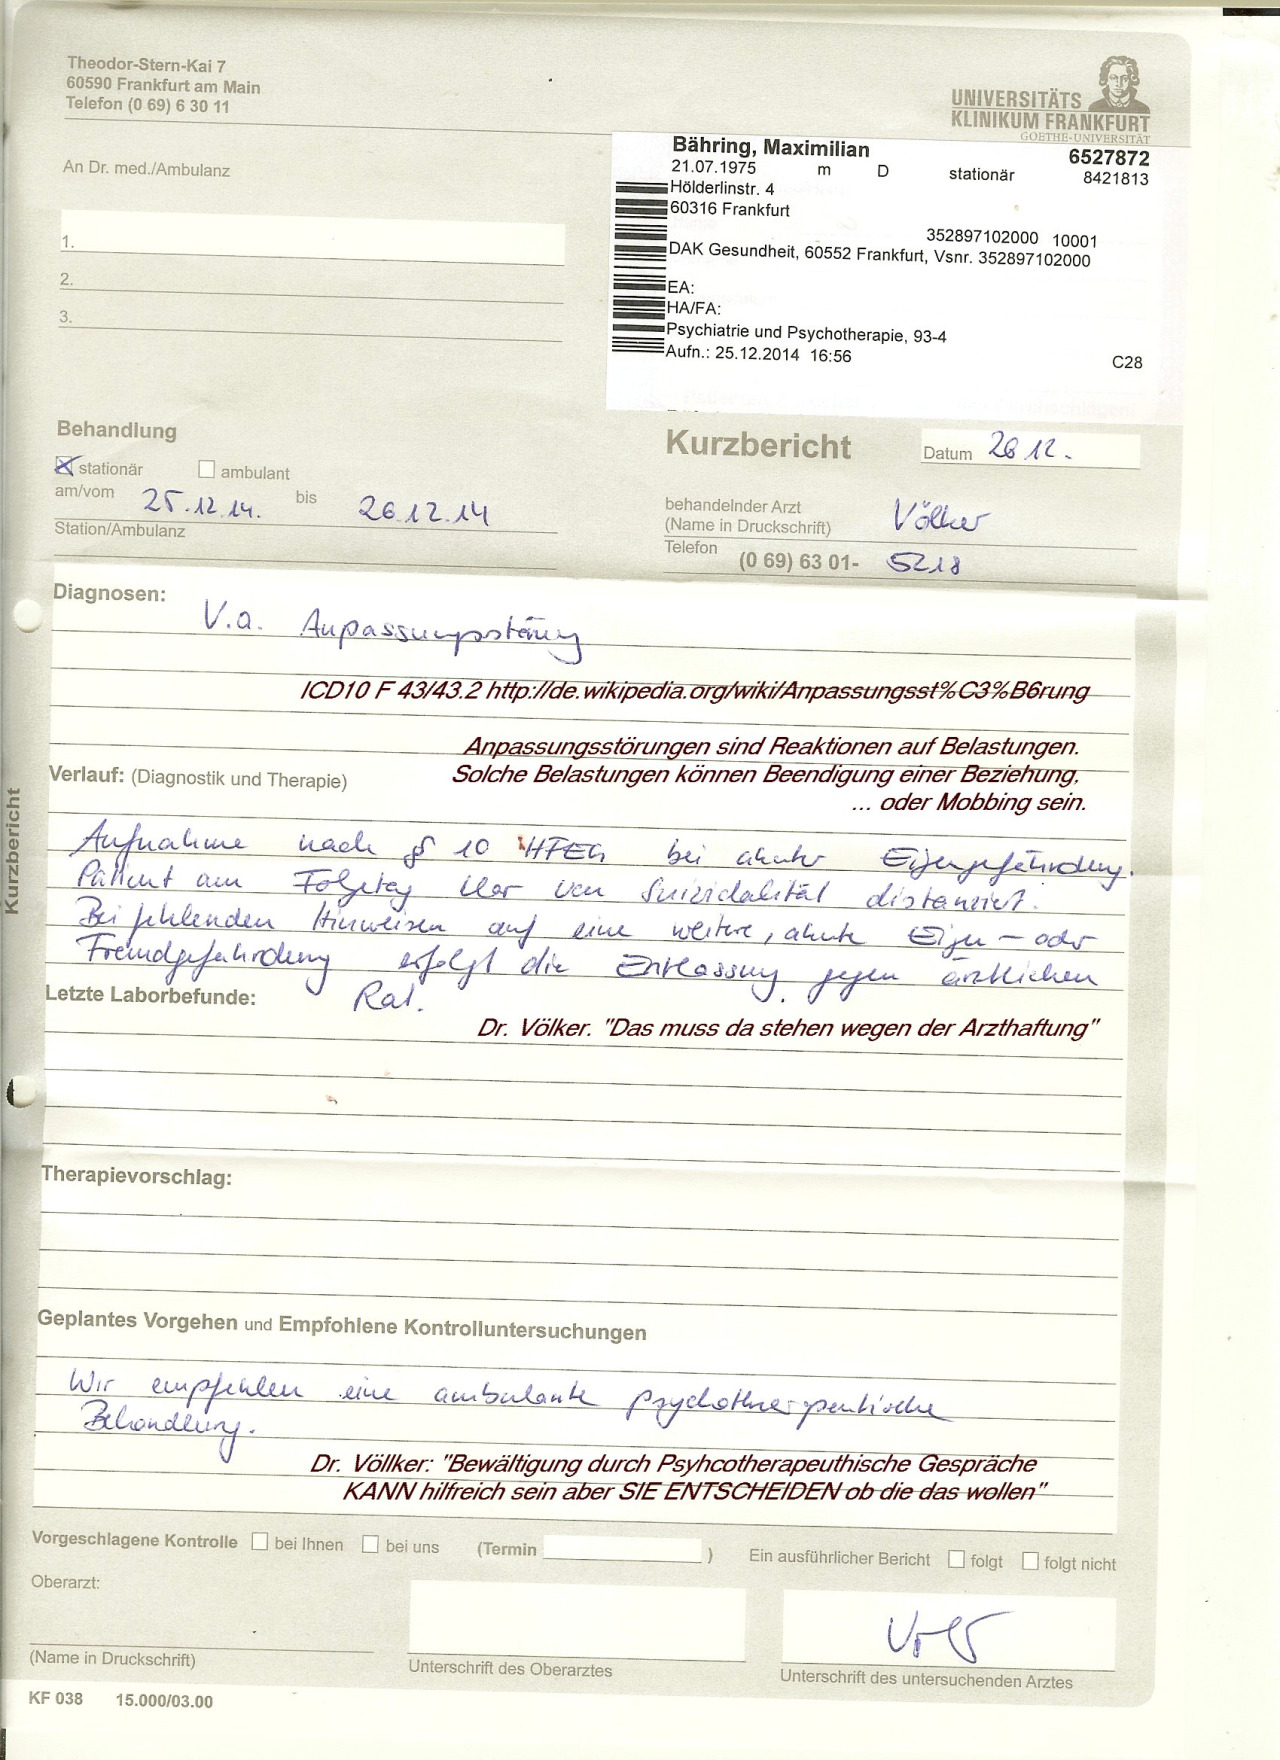 Theodor-Stern-Kai 7
60590 Frankfurt am Main
Telefon (0 69) 6 30 11
UNIVERSITÄTS
KLINIKUM FRANKFURT
GOETHE-UNIVERSITÄT
An Dr. med./Ambulanz
1.
2.
3.
Bähring, Maximilian 6527872
21.07.1975 m D stationär 8421813
Hölderlinstr. 4
60316 Frankfurt
352897102000 10001
DAK Gesundheit, 60552 Frankfurt, Vsnr. 352897102000
EA:
HA/FA:
Psychiatrie und Psychotherapie, 93-4
Aufn.: 25.12.2014 16:56
C28
Behandlung
stationär ambulant
am/vom 25.12.14. bis 26.12.14
Station/Ambulanz
Kurzbericht Datum 26 12.
behandelnder Arzt
(Name in Druckschrift) Völker
Telefon (0 69) 63 01- 5218
Diagnosen:
V.a. Anpassungsstörung
ICD10 F 43/43.2 http://de.wikipedia.org/wiki/Anpassungsst%C3%B6rung
Anpassungsstörungen sind Reaktionen auf Belastungen.
Solche Belastungen können Beendigung einer Beziehung,
... oder Mobbing sein.
Verlauf: (Diagnostik und Therapie)
Aufnahme nach § 10 HFEG bei akuter Eigengefährdung.
Patient am Folgetag klar von Suizidalität distanziert.
Bei fehlenden Hinweisen auf eine weitere, akute Eigen- oder
Fremdgefährdung erfolgt die Entlassung gegen ärztlichen
Rat.
Letzte Laborbefunde:
Dr. Völker. "Das muss da stehen wegen der Arzthaftung"
Kurzbericht
Therapievorschlag:
Geplantes Vorgehen und Empfohlene Kontrolluntersuchungen
Wir empfehlen eine ambulante psychotherapeutische
Behandlung.
Dr. Völlker: "Bewältigung durch Psyhcotherapeuthische Gespräche
KANN hilfreich sein aber SIE ENTSCHEIDEN ob die das wollen"
Vorgeschlagene Kontrolle bei Ihnen bei uns (Termin ) Ein ausführlicher Bericht folgt folgt nicht
Oberarzt:
(Name in Druckschrift)
Unterschrift des Oberarztes
Unterschrift des untersuchenden Arztes
KF 038 15.000/03.00